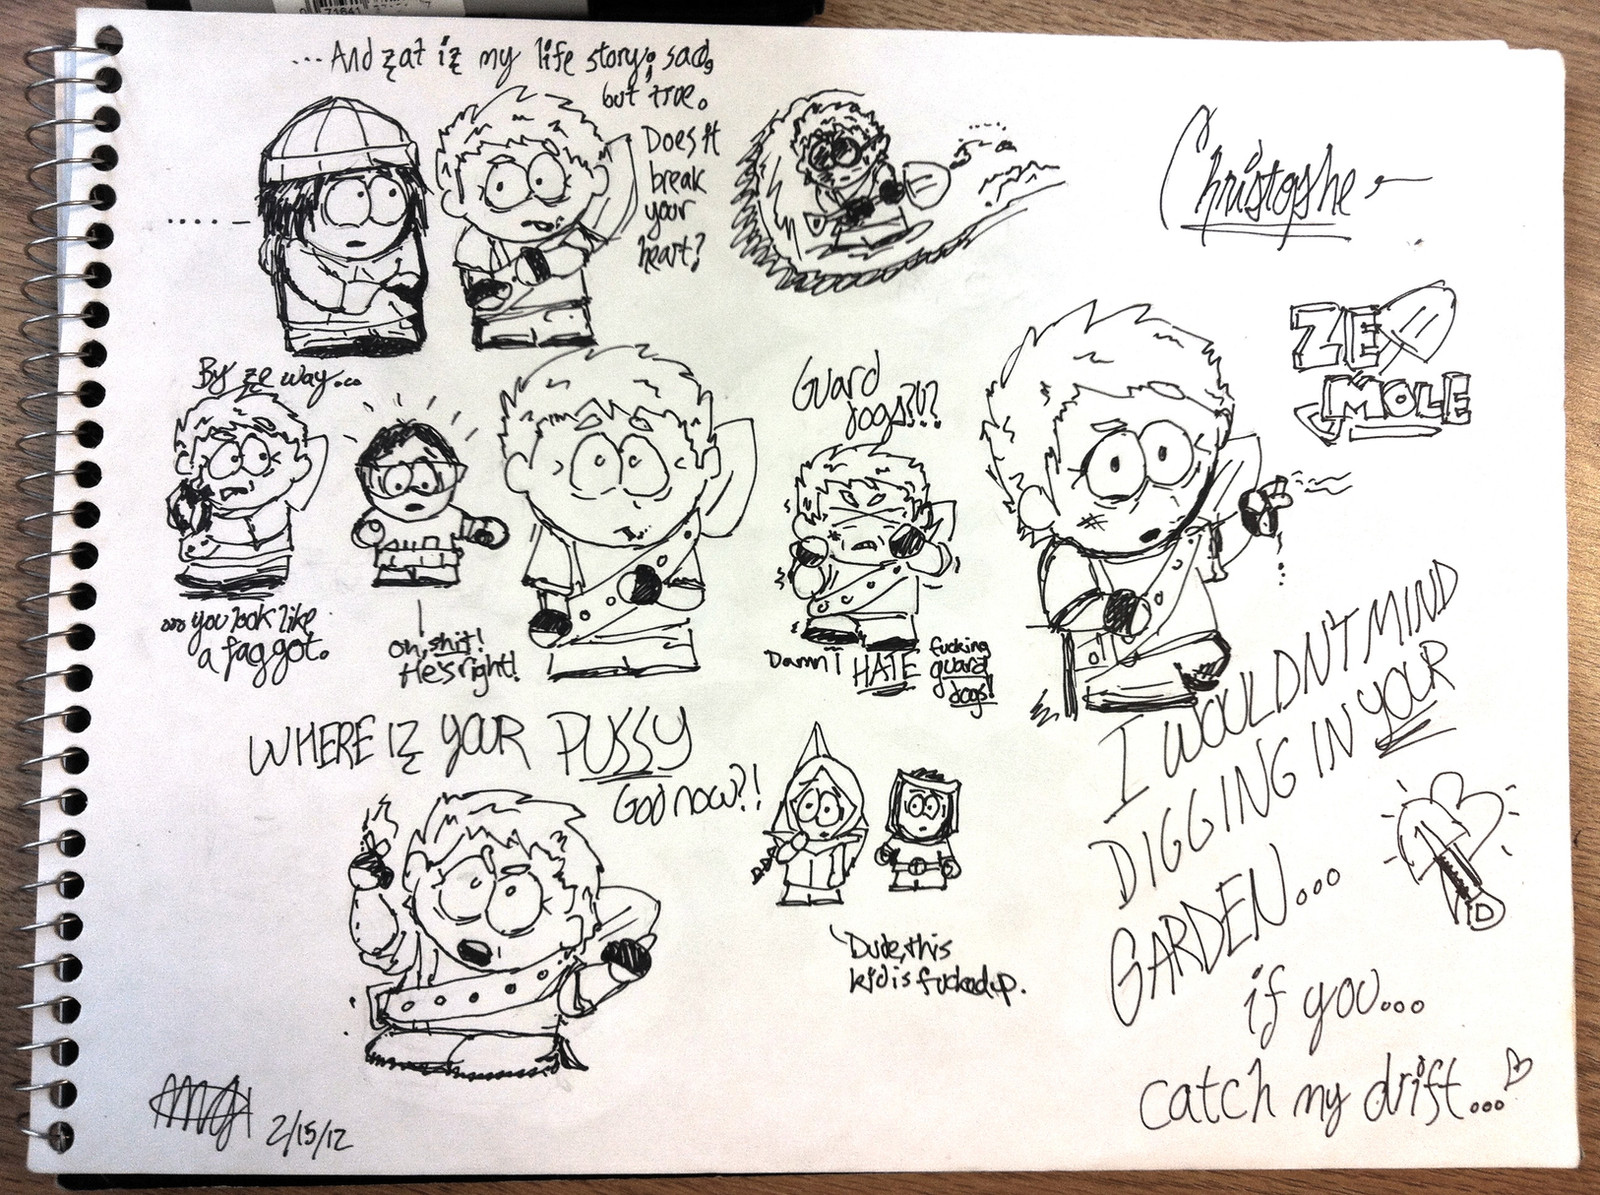 ...And zat iz my life story; sad,
but true.
Does it
break
your
heart?
Christophe
ZE
MOLE
By ze way...
...you look like
a faggot.
oh, shit!
He's right!
Guard
dogs?!?
Damn I HATE fucking
guard
dogs!
I WOULDN'T MIND
DIGGING IN YOUR
GARDEN...
if you...
catch my drift...
WHERE IZ YOUR PUSSY
GOD NOW?!
Dude, this
kid is fucked up.
2/15/12